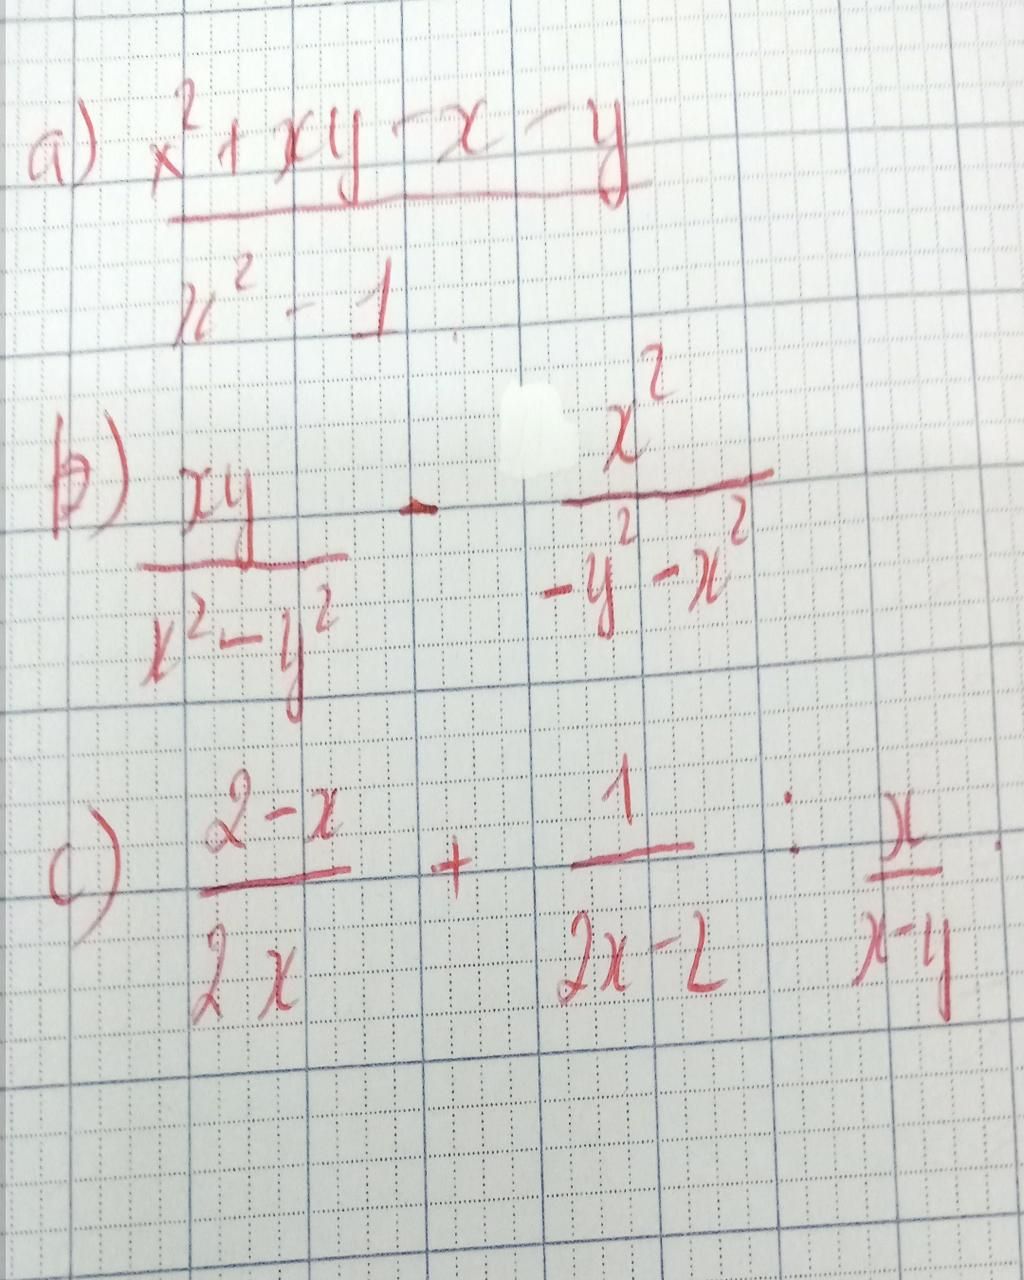 a) x² + xy - x - y / x² - 1
b) xy / x² - y² - x² / -y² - x²
c) 2 - x / 2x + 1 / 2x - 2 : x / x - y .